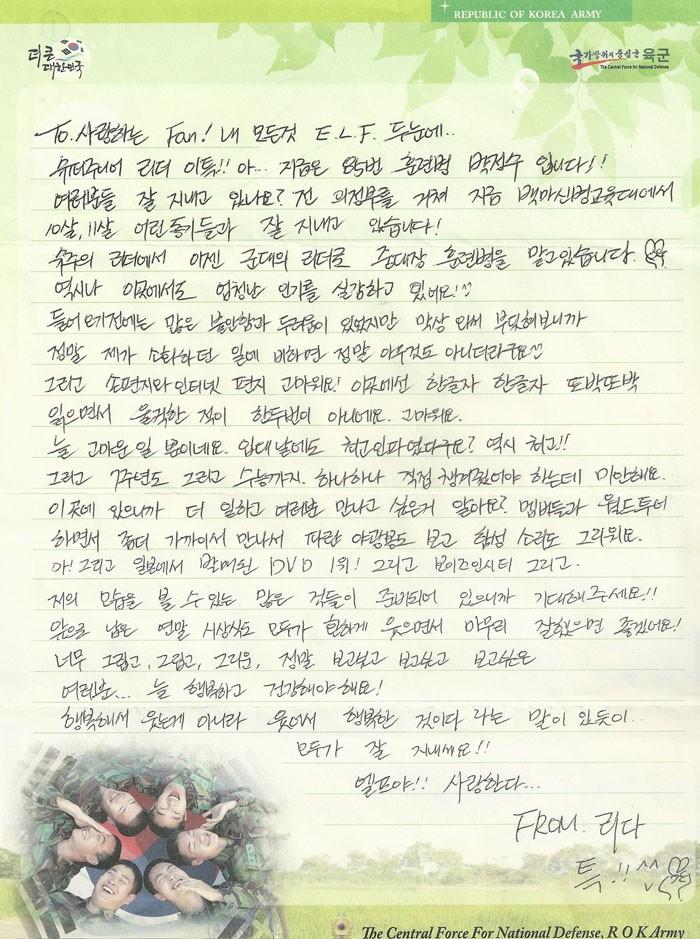 REPUBLIC OF KOREA ARMY
더 큰
대한민국
국가방위의 중심군 육군
The Central Force for National Defense
To. 사랑하는 Fan! 내 모든것 E.L.F. 두눈에..
슈퍼주니어 리더 이특!! 아... 지금은 85번 훈련병 박정수 입니다!!
여러분들 잘 지내고 있나요? 전 의정부를 거쳐 지금 백마신병교육대에서
10살, 11살 어린 동기들과 잘 지내고 있습니다!
슈주의 리더에서 이젠 군대의 리더로 중대장 훈련병을 맡고있습니다.
역시나 이곳에서도 엄청난 인기를 실감하고 있어요!^^
들어오기전에는 많은 불안함과 두려움이 있었지만 막상 와서 부딪혀보니까
정말 제가 소화하던 일에 비하면 정말 아무것도 아니더라구요^^
그리고 손편지와 인터넷 편지 고마워요! 이곳에선 한글자 한글자 또박또박
읽으면서 울컥한 적이 한두번이 아니에요. 고마워요.
늘 고마운 일 뿐이네요. 입대날에도 최고인파였다구요? 역시 최고!!
그리고 7주년도 그리고 수능까지. 하나하나 직접 챙겨줬어야 하는데 미안해요.
이곳에 있으니까 더 일하고 여러분 만나고 싶은거 알아요? 멤버들과 월드투어
하면서 좀더 가까이서 만나서 파란 야광봉도 보고 함성 소리도 그리워요.
아! 그리고 일본에서 발매된 DVD 1위! 그리고 보이즈인시티 그리고.
저의 모습을 볼 수 있는 많은 것들이 준비되어 있으니까 기대해주세요!!
앞으로 남은 연말 시상식도 모두가 환하게 웃으면서 마무리 잘했으면 좋겠어요!
너무 그립고, 그립고, 그리운, 정말 보고싶고 보고싶고 보고싶은
여러분... 늘 행복하고 건강해야해요!
행복해서 웃는게 아니라 웃어서 행복한 것이다 라는 말이 있듯이..
모두가 잘 지내세요!!
엘프야!! 사랑한다...
FROM. 리다
특!! ^^
The Central Force For National Defense, R O K Army